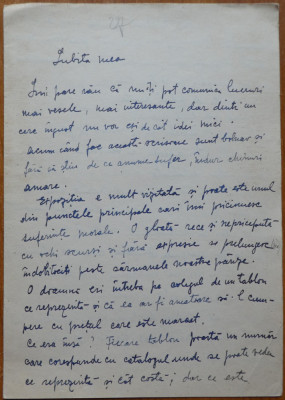 Iubita mea
Îmi pare rău că nu-ți pot comunica lucruri
mai vesele, mai interesante, dar dintr'un
cere îngust nu vor eși decât idei mici.
Acum când fac această scrisoare sunt bolnav și
fără să știu de ce anume sufer, îndur chinuri
amare.
Expoziția e mult vizitată și poate este unul
din punctele principale cari îmi pricinuesc
suferințe morale. O gloată rece și nepricepută
cu ochi scurși și fără expresie se prelungesc
îndobitociți peste sărmanele noastre pânze.
O doamnă eri întreba pe colegul de un tablou
ce reprezintă și că ea ar fi amatoare să-l cum-
pere cu prețul care este marcat.
Ce era însă? Fiecare tablou poartă un număr
care corespunde cu catalogul unde se poate vedea
ce reprezintă și cât costă; dar ce este